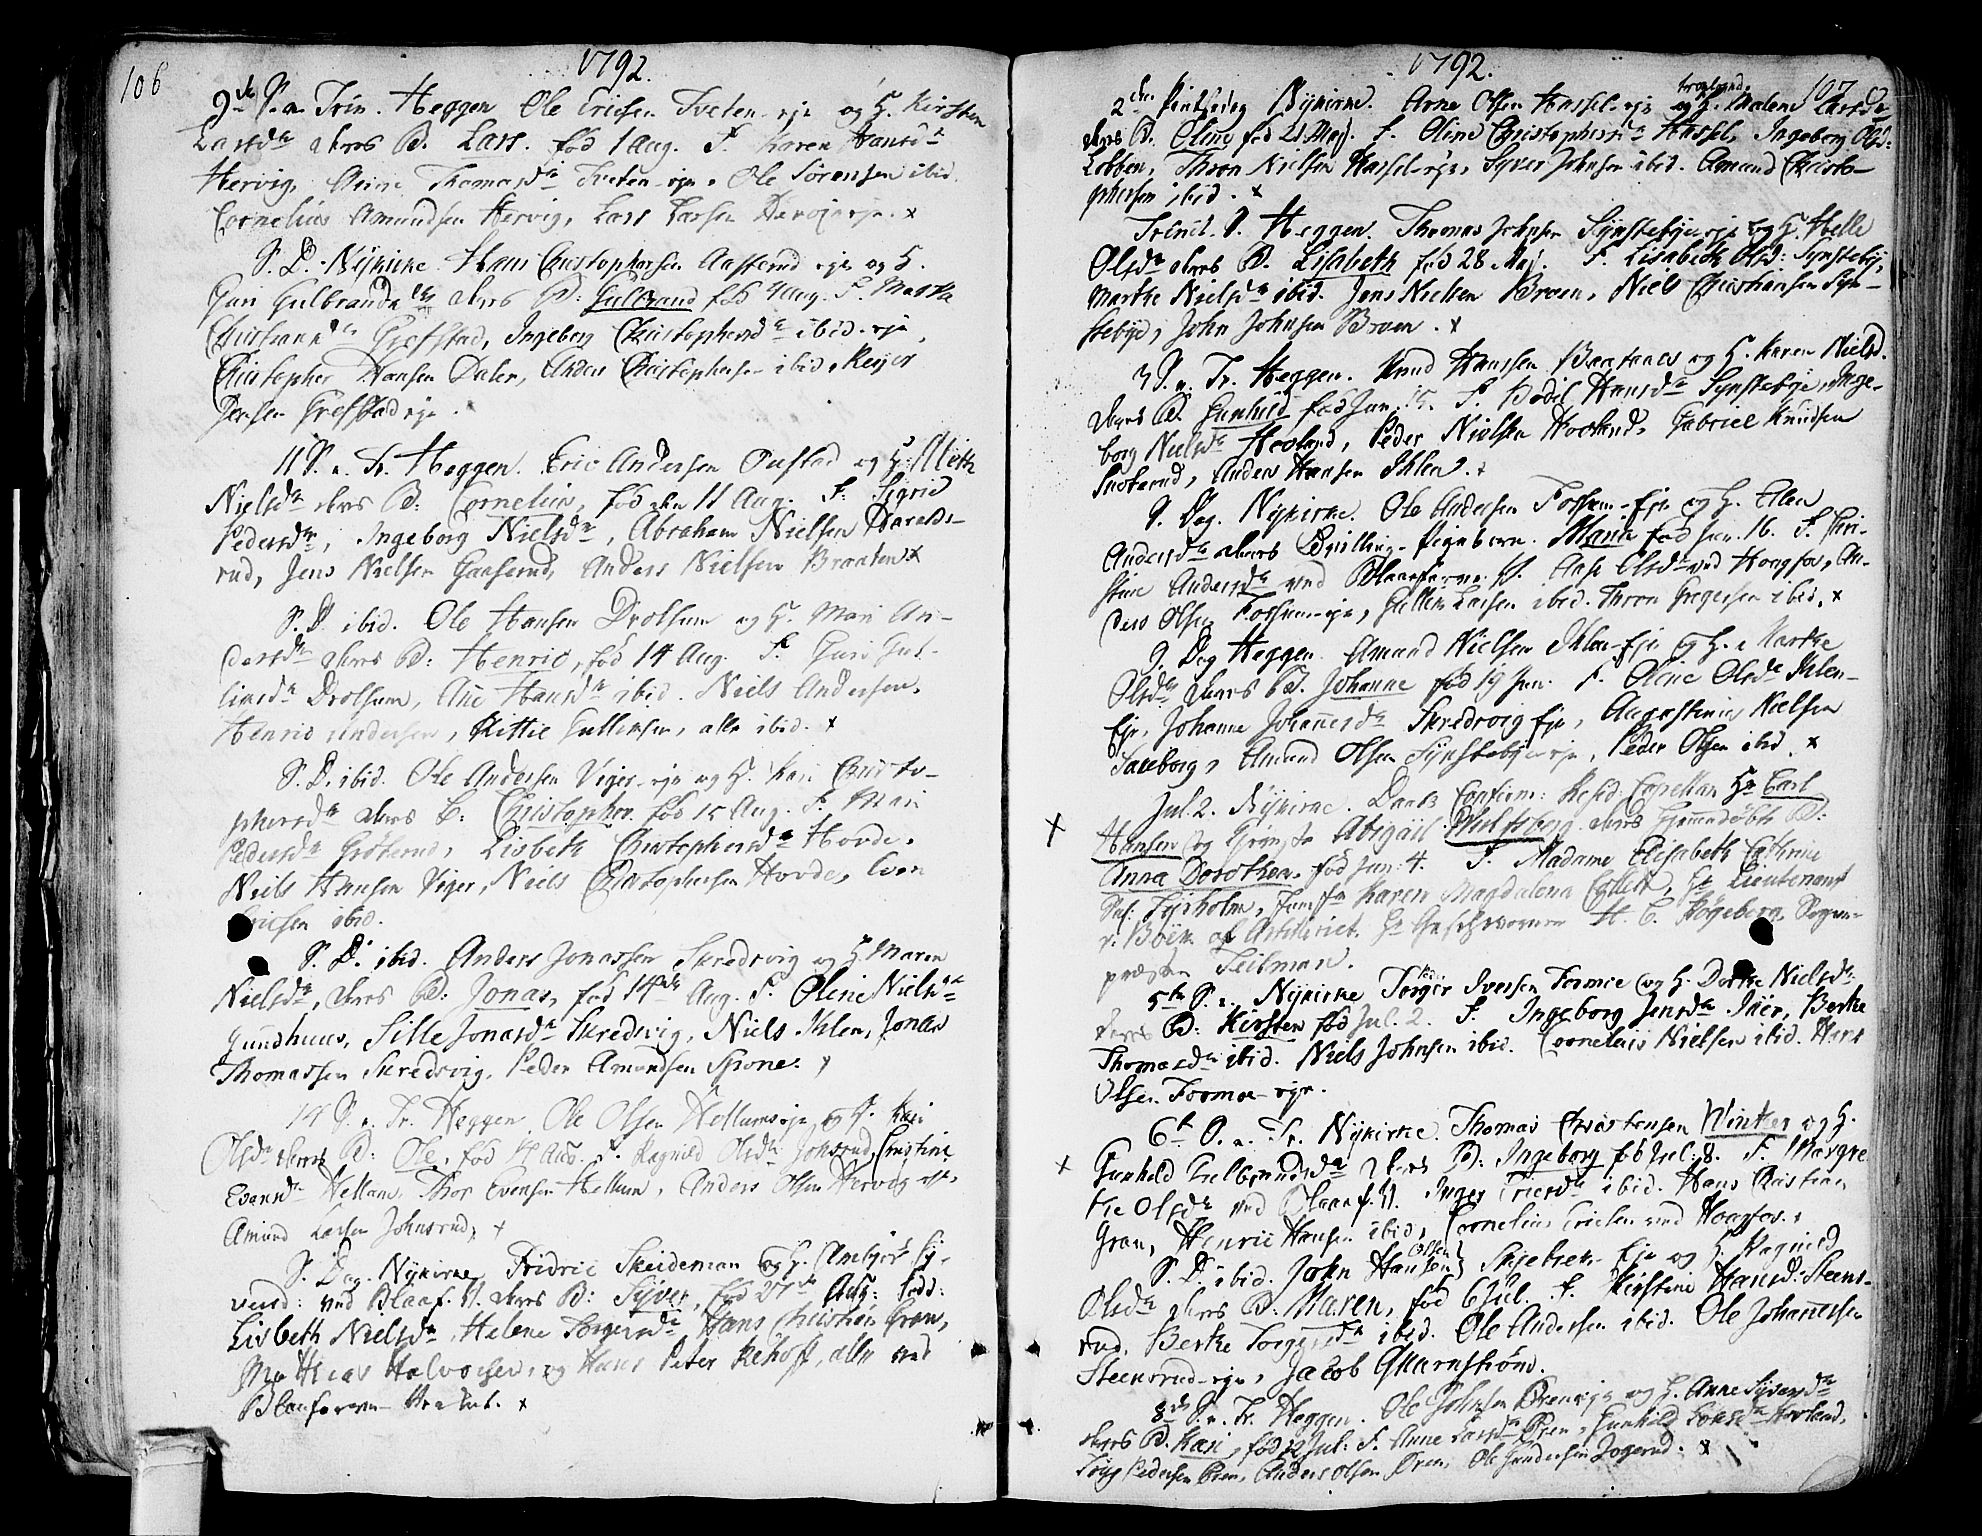 106
1792.
9de S. a. Trin. Heggen Ole Ericsen Tveten-eje og H. Kirsten
Larsdtr deres B. Lars. fød 1 Aug. F. Karen Hansdr
Hervig, Anne Thomasdr Tveten-eje, Ole Sörensen ibid.
Cornelius Amundsen Hervig, Lars Larsen
S. D. Nykirke Hans Christophersen Aaserud eje og H.
Guri Gulbrandsdr deres B: Gulbrand fød 4 Aug. F. Marthe
Grefstad, Ingeborg Christophersdr ibid. eje,
Christopher Hansen Dalen, Anders Christophersen ibid,
Jensen Grefstad eje.
11 S. a. Tr. Heggen. Eric Andersen Oustad og H. Aleth
Nielsdr deres B: Cornelia, fød den 11 Aug. F: Sigrid
Pedersdr, Ingeborg Nielsdr, Abraham Nielsen Haralds-
rud, Jens Nielsen Gunserud, Anders Nielsen Braaten. x
S. D. ibid. Ole Hansen Drolsum og H. Mari An-
dersdr deres B: Henric, fød 14 Aug. F. Guri Gul-
Drolsum, Ane Hansdr ibid. Niels Andersen,
Henric Andersen, Kittil Gullicsen, alle ibid. x
S. D. ibid. Ole Andersen Viger-eje og H. Kari Christo-
phersdr deres B: Christopher. fød 15 Aug. F. Mari
Pedersdr Gröterud, Lisbeth Christophersdr Hovde,
Niels Hansen Viger, Niels Christophersen Hovde, Even
Ericsen ibid.
S. D. ibid. Anders Jonassen Skredsvig og H. Maren
Nielsdr, deres B: Jonas, fød 14de Aug. F. Oline Nielsdr
Gundhuus, Sille Jonasdr Skredsvig, Niels Ihlen, Jonas
Thomassen Skredsvig. Peder Amundsen Spone. x
14 S. a. Tr. Heggen. Ole Olsen Hellums eje og H. Kari
Olsdr deres B: Ole, fød Aug. F. Ragnild Olsdr Johnsrud, Christine
Evensdr Hellum, Thor Evensen Hellum, Anders Olsen Hervig eje,
Amund Larsen Johnsrud, x
S. Dag. Nykirke Fridric Skeideman og H. Anbjør Sy-
versd: ved Blaaf. V. deres B: Syver, fød 27de Aug: Fadd:
Lisbeth Nielsdr, Helene Torgersdr Hans Christian Gran,
Mathias Halvorsen, og Hans Peter Rehoff, alle ved
Blaafarve Værket. x
1792.
107
2den Pintsedag Nykirke. Arne Olsen Hassel-eje og H. Malene Larsdr
deres B. Oline fød 21 Maj. F. Oline Christophersdr Hassel, Ingeborg Olsd:
Lobben, Thron Nielsen Hassel-eje, Syver Johnsen ibid. Amund Christo-
phersen ibid. x
Trinit. S. Heggen. Thomas Johnsen Synstebye eje og H. Helle
Olsdr deres B. Lisabeth fød 28 Maj. F. Lisabeth Olsd: Synsteby,
Marthe Nielsdr ibid. Jens Nielsen Broen, Niels Christiansen Syn-
stebye, John Johnsen Broen. x
3 S. a. Tr. Heggen. Knud Hanssen Braatnes og H. Karen Nielsd.
deres B. Gunhild fød Jun. 15. F. Bodil Hansdr Synstebye, Inge-
borg Nielsdr Hovland, Peder Nielsen Hovland, Gabriel Knudsen
Anders Hansen Ihlen. x
S. Dag. Nykirke. Ole Andersen Fossum-Eje og H. Elen
Andersdr deres Tvilling-Pigebørn. Maria fød Jun. 16. F. Chri-
stine Andersdr ved Blaafarve V. Aase Olsdr ved Hougfos, An-
ders Olsen Fossum-eje, Gullik Larsen ibid. Thron Gregersen ibid. x
S. Dag Heggen. Amund Nielsen Ihlen-Eje og H. Marthe
Olsdr deres B. Johanne fød 19 Jun. F. Oline Olsdr Ihlen-
Eje, Johanne Johannesdr Skredsvig Eje, Augustinus Nielsen
Amund Olsen Synstebye-eje, Peder Olsen ibid. x
Jul. 2. Nykirke. Daab Confirm: Resid: Capellan Hr Carl
Hansen og Abigaïl Wulfsberg deres Hjemmedøbte B:
Anna Dorothea. fød Jun. 4. F. Madame Elisabeth Cathrine
Tyrholm, Jomfr Karen Magdalena Collett, Hr Lieutenant
af Artilleriet. Hr Geschworner H. C. Høgeberg, Sogne-
præsten Teilman.
5te S. a. Nykirke Torger Iversen Formoe og H. Dorthe Nielsdr
deres B: Kirsten fød Jul. 2. F. Ingeborg Jensdr Berthe
Thomasdr ibid. Niels Johnsen ibid. Cornelius Nielsen ibid. Hans
Olsen Formoe-eje.
6te S. a. Tr. Nykirke. Thomas Christensen Winter og H.
Gunhild Gulbrandsdr deres B: Ingeborg fød Jul. 8. F. Margre-
the Olsdr ved Blaaf. V. Inger Ericsdr ibid. Hans Christian
Gran, Henric Hansen ibid, Cornelius Ericsen ved Hougfos.
S. D. ibid. John Hansen (Olsen) Eje og H. Ragnild
Olsdr deres B: Maren, fød 6 Jul. F. Kirstine Hansd: Steens-
rud. Berthe Torgersdr ibid. Ole Andersen ibid. Ole Johannesen
Steensrud-eje, Jacob Qvarnstrøm.
8de S. a. Tr. Heggen. Ole Johnsen Breneje og H. Anne Syversdr
deres B. Kari, fød 12 Jul: F. Anne Larsdr Bren, Gunhild Hovland,
Pedersen Bren, Anders Olsen Bren, Ole Gundersen x